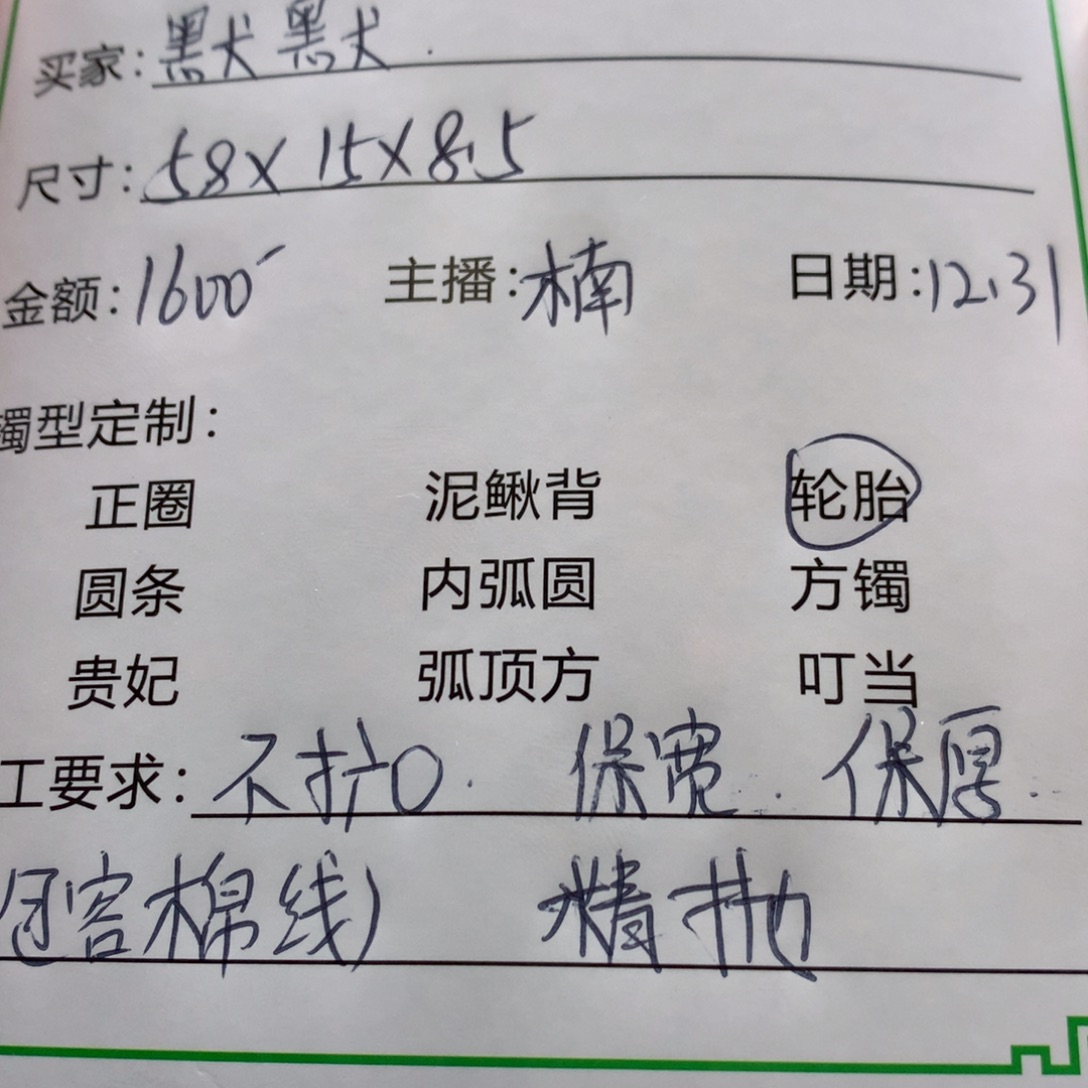 买家:默默.
尺寸:58X15X8.5
金额:1600 主播:楠 日期:12.31
镯型定制:
正圈 泥鳅背 轮胎
圆条 内弧圆 方镯
贵妃 弧顶方 叮当
工要求:不扩口. 保宽. 保厚.
客棉线) 精抛